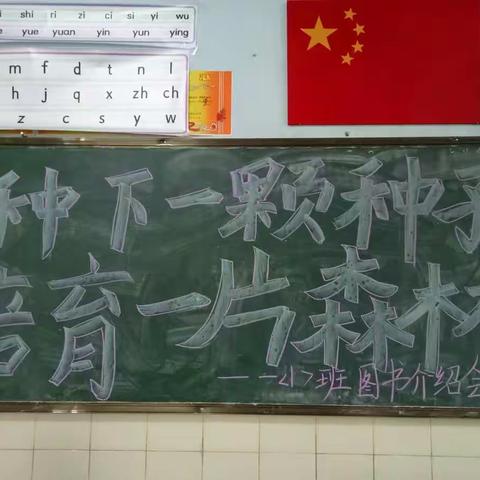 shi ri zi ci si yi wu
ye yue yuan yin yun ying
m f d t n l
h j q x zh ch
z c s y w
种下一颗种子
培育一片森林
——二(1)班图书介绍会